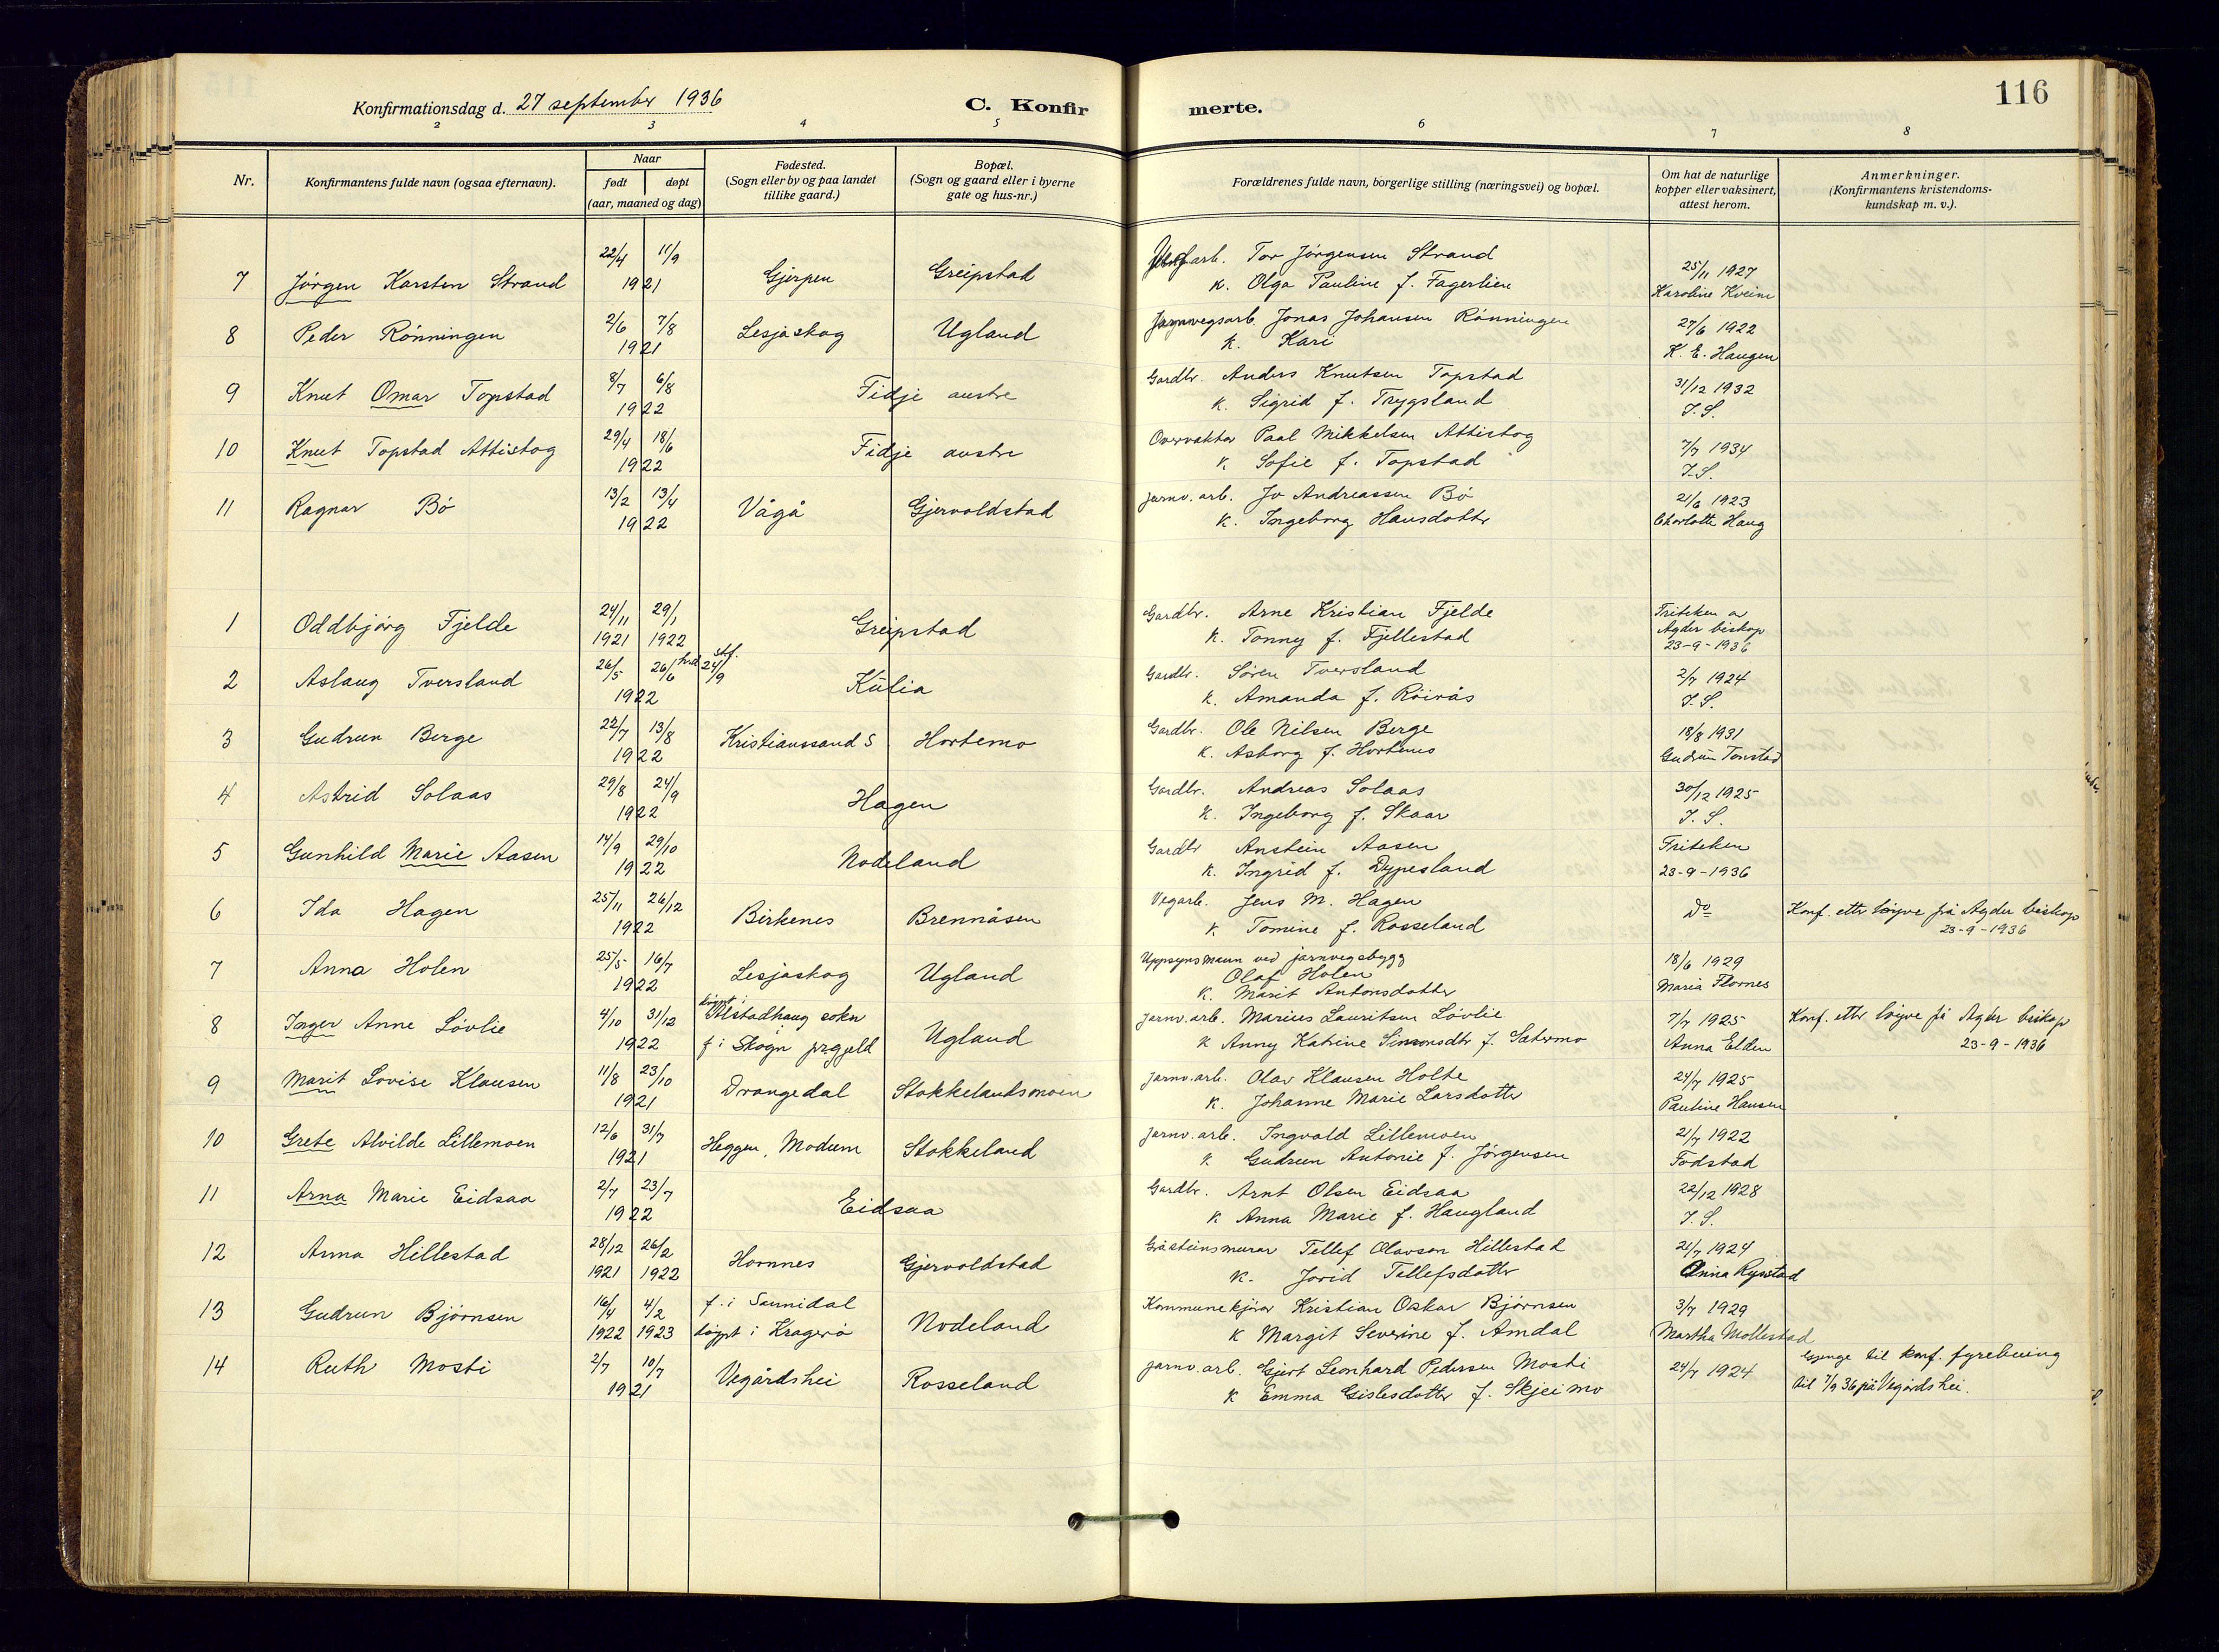 116
Konfirmationsdag d. 27 september 1936
C. Konfir merte.
2 3 4 5 6 7 8
Nr.
Konfirmantens fulde navn (ogsaa efternavn).
Naar
født døpt
(aar, maaned og dag)
Fødested.
(Sogn eller by og paa landet
tillike gaard.)
Bopæl.
(Sogn og gaard eller i byerne
gate og hus-nr.)
Forældrenes fulde navn, borgerlige stilling (næringsvei) og bopæl.
Om hat de naturlige
kopper eller vaksinert,
attest herom.
Anmerkninger.
(Konfirmantens kristendoms-
kundskap m. v.).
22/4 11/9 arb. Tor Jørgensen Strand
7 Jørgen Karsten Strand 1921 Gjerpen Greipstad K. Olga Pauline f. Fagerlien 25/11 1927
Karoline Kveim
2/6 7/8 Jarnvegsarb. Jonas Johansen Rønningen 27/6 1922
8 Peder Rønningen 1921 Lesjaskog Ugland K. Kari K. E. Haugen
8/7 6/8 Gardbr. Anders Knutsen Topstad 31/12 1932
9 Knut Omar Topstad 1922 Fidje austre K. Sigrid f. Trygsland J. S.
29/4 18/6 Overvakter Paal Mikkelsen Attistog 7/7 1934
10 Knut Topstad Attistog 1922 Fidje austre K Sofie f. Topstad J. S.
13/2 13/4 jarnv. arb. Jo Andreassen Bø 21/6 1923
11 Ragnar Bø 1922 Vågå Gjervoldstad K. Ingeborg Hansdotter Charlotte Haug
24/11 29/1 Gardbr. Arne Kristian Fjelde Friteken av
1 Oddbjørg Fjelde 1921 1922 Greipstad K. Tonny f. Fjellestad Agder biskop
23-9-1936
26/5 26/6 24/9 stf. Gardbr. Søren Tversland 2/7 1924
2 Aslaug Tversland 1922 Kulia K. Amanda f. Røirås J. S.
22/7 13/8 Gardbr. Ole Nilsen Berge 18/8 1931
3 Gudrun Berge 1922 Kristianssand S Hortemo K. Asborg f. Hortemo Gudrun Tonstad
29/8 24/9 Gardbr. Andreas Solaas 30/12 1925
4 Astrid Solaas 1922 Hagen K. Ingeborg f. Skaar J. S.
14/9 29/10 Gardbr Anstein Aasen Friteken
5 Gunhild Marie Aasen 1922 Nodeland K. Ingrid f. Dypesland 23-9-1936
25/11 26/12 Vegarb. Jens M. Hagen Do Konf. etter løyve på Agder biskop
6 Ida Hagen 1922 Birkenes Brennåsen K Tomine f. Rosseland 23-9-1936
25/5 16/7 Uppsynsmann ved jarnvegsbygg 18/6 1929
7 Anna Holen 1922 Lesjaskog Ugland Olaf Holen
K. Marit Antonsdotter Maria Flornes
4/10 31/12 døypt i Alstadhaug sokn jarnv. arb. Marius Lauritsen Løvlie 7/7 1925 Konf. etter løyve på Agder biskop
8 Inger Anne Løvlie 1922 f i Skogn prgjeld Ugland K Anny Katrine Simonsdtr f. Sætermo Anna Elden 23-9-1936
11/8 23/10 jarnv. arb. Olav Klausen Holte 24/7 1925
9 Marit Lovise Klausen 1921 Drangedal Stokkelandsmoen K. Johanne Marie Larsdotter Pauline Hansen
12/6 31/7 jarnv. arb. Ingvald Lillemoen 21/7 1922
10 Grete Alvilde Lillemoen 1921 Heggen, Modum Stokkeland K. Gudrun Antonie f. Jørgensen Fodstad
2/7 23/7 Gardbr. Arnt Olsen Eidsaa 22/12 1928
11 Arna Marie Eidsaa 1922 Eidsaa K Anna Marie f. Haugland J. S.
28/12 26/2 Gråsteinsmurar Tellef Olavson Hillestad 21/7 1924
12 Anna Hillestad 1921 1922 Hornnes Gjervoldstad K. Jorid Tellefsdotter Anna Rystad
16/4 4/2 f. i Sannidal Kommunekjører Kristian Oskar Bjørnsen 3/7 1929
13 Gudrun Bjørnsen 1922 1923 døypt i Kragerø Nodeland K Margit Severine f. Amdal Martha Mollestad
2/7 10/7 jarnv. arb. Gjert Leonhard Pedersen Mosti 24/7 1924 Gjenge til konf. fyrebuing
14 Ruth Mosti 1921 Vegårdshei Rosseland K Emma Gislesdotter f. Skjeimo til 7/9 36 på Vegårdshei.